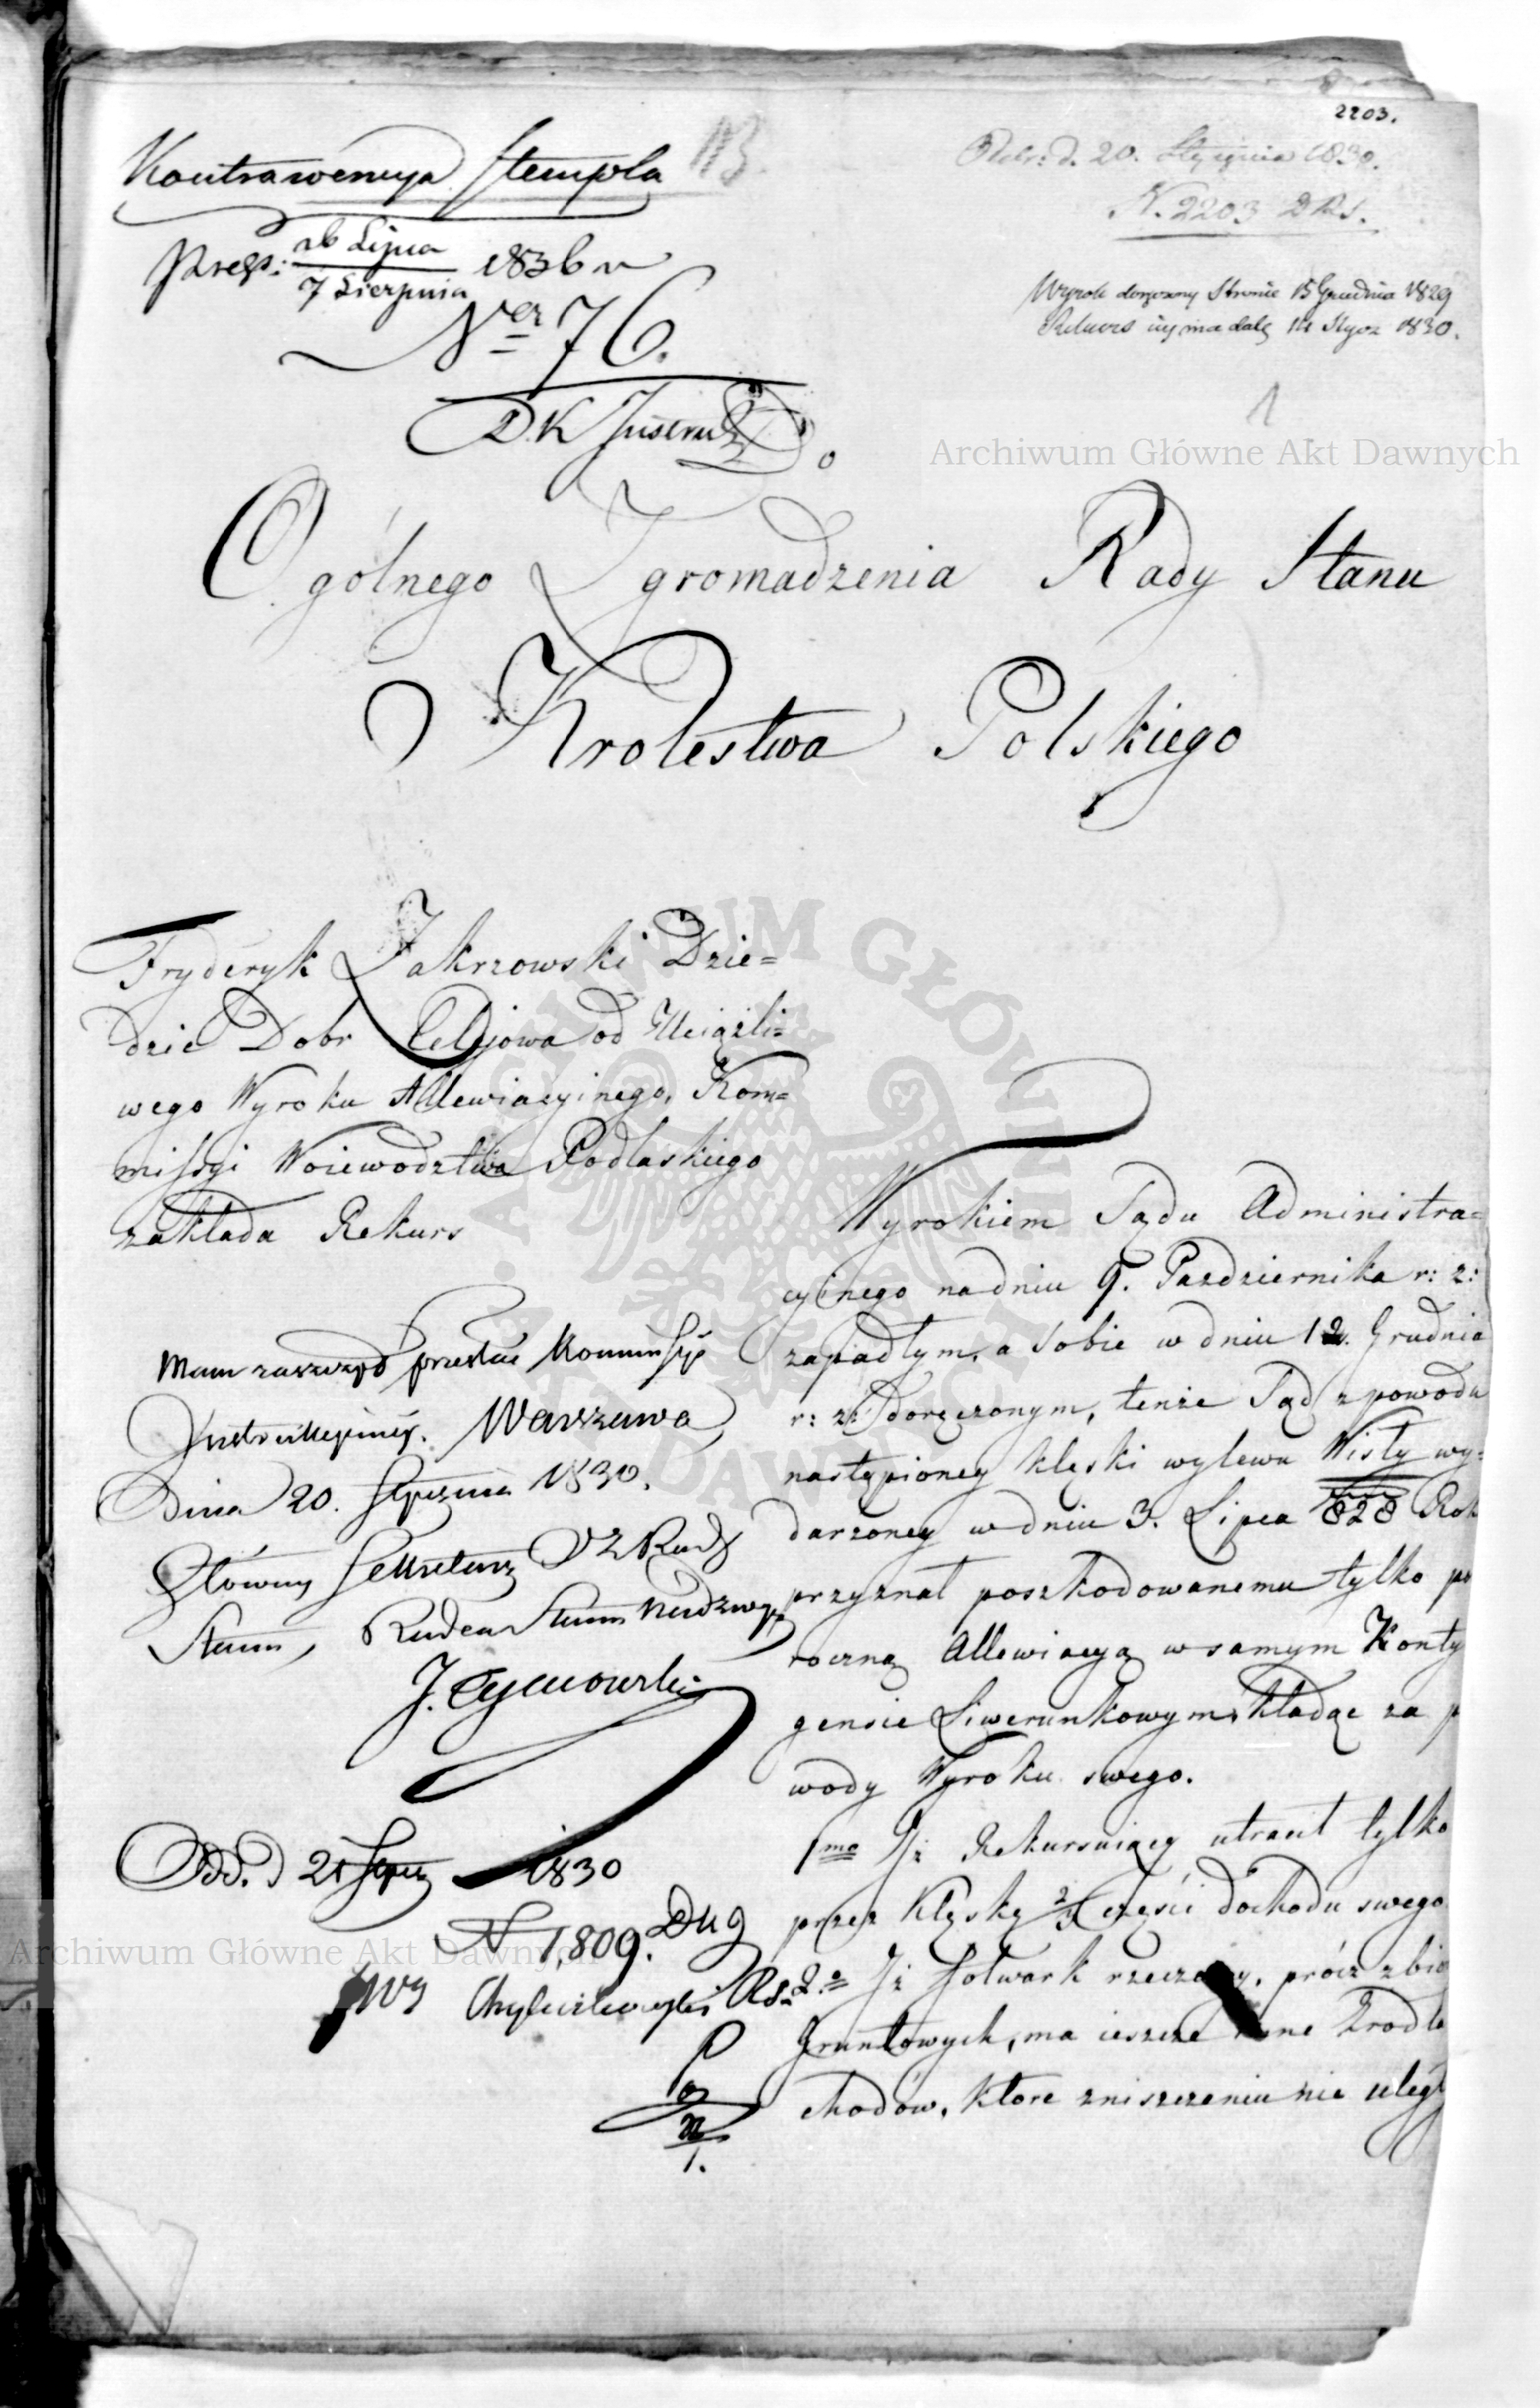 2203.
Kontrawencya Stempla
Odebr: d. 20. Stycznia 1830.
N. 2203 DRS.
26 Lipca
7 Sierpnia
1836 r
Wyrok doręczony Stronie 15 Grudnia 1829
Rekurs 14 Stycz 1830.
Ner 76.
1
D.K Instruk
Do
Archiwum Główne Akt Dawnych
Ogólnego Zgromadzenia Rady Stanu
Krolestwa Polskiego
Fryderyk Zakrzowski Dzie=
dzic Dobr Celejowa od Uciążli=
wego Wyroku Allewiacyinego, Kom=
missyi Woiewodztwa Podlaskiego
zakłada Rekurs
Mam zaszczyt przesłać Kommissyi
Instrukcyiney. Warszawa
Dnia 20. Stycznia 1830.
Główny Sekretarz Rady
Stanu, Radca Stanu Nadzwy.
Odd. d 21 Stycz 1830
N 1,809.
Wyrokiem Sądu Administra=
cyinego na dniu 9. Pazdziernika r: z:
zapadłym, a sobie w dniu 12. Grudnia
r: z: doręczonym, tenże Sąd z powodu
nastąpioney klęski wylewu Wisły wy=
darzoney w dniu 3. Lipca 1828 Rok
przyznał poszkodowanemu tylko pu
roczną Allewiacyą w samym Konty
gensie Liwerunkowym, kładąc za p
wody Wyroku swego.
1mo Jż Rekursuiący utracił tylko
przez Klęskę 2/3 części dochodu swego
2o Jż folwark rzeczony, prócz zbio
Gruntowych, ma ieszcze inne Zrodła
chodów, które zniszczeniu nie uległ
Archiwum Główne Akt Dawnych
ARCHIWUM GŁÓWNE AKT DAWNYCH